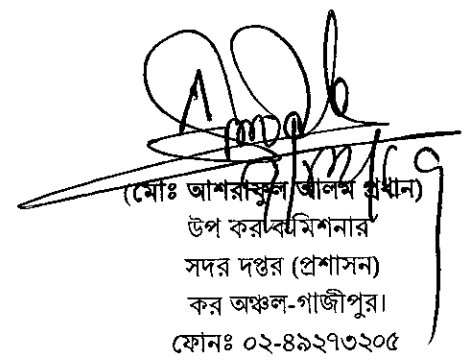 (মোঃ আশরাফুল আলম প্রধান)
উপ কর কমিশনার
সদর দপ্তর (প্রশাসন)
কর অঞ্চল-গাজীপুর।
ফোনঃ ০২-৪৯২৭৩২০৫